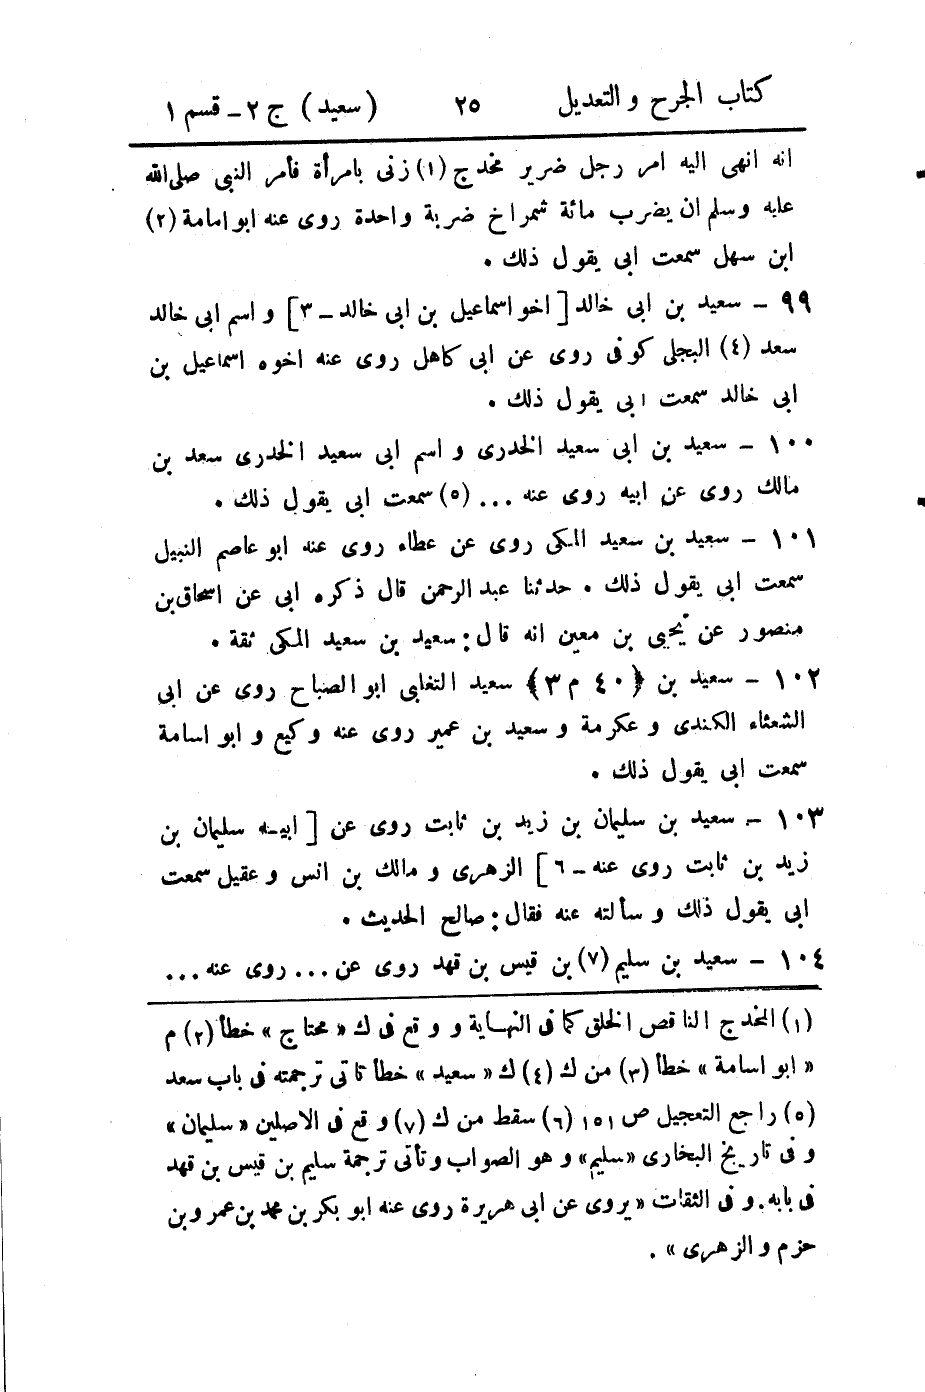 كتاب الجرح و التعديل ٢٥ (سعيد) ج ٢ - قسم ١
انه انهى اليه امر رجل ضرير مخدج (١) زنى بامرأة فأمر النبى صلى الله
عليه وسلم ان يضرب مائة شمراخ ضربة واحدة روى عنه ابو امامة (٢)
ابن سهل سمعت ابى يقول ذلك .
٩٩ - سعيد بن ابى خالد [ اخو اسماعيل بن ابى خالد - ٣ ] و اسم ابى خالد
سعد (٤) البجلى كوفى روى عن ابى كاهل روى عنه اخوه اسماعيل بن
ابى خالد سمعت ابى يقول ذلك .
١٠٠ - سعيد بن ابى سعيد الخدرى و اسم ابى سعيد الخدرى سعد بن
مالك روى عن ابيه روى عنه ... (٥) سمعت ابى يقول ذلك .
١٠١ - سعيد بن سعيد المكى روى عن عطاء روى عنه ابو عاصم النبيل
سمعت ابى يقول ذلك . حدثنا عبد الرحمن قال ذكره ابى عن اسحاق بن
منصور عن يحيى بن معين انه قال : سعيد بن سعيد المكى ثقة .
١٠٢ - سعيد بن ﴿ ٤٠ م ٣ ﴾ سعيد التغلبى ابو الصباح روى عن ابى
الشعثاء الكندى و عكرمة و سعيد بن عمير روى عنه وكيع و ابو اسامة
سمعت ابى يقول ذلك .
١٠٣ - سعيد بن سليمان بن زيد بن ثابت روى عن [ ابيه سليمان بن
زيد بن ثابت روى عنه - ٦ ] الزهرى و مالك بن انس و عقيل سمعت
ابى يقول ذلك و سألته عنه فقال : صالح الحديث .
١٠٤ - سعيد بن سليم (٧) بن قيس بن قهد روى عن ... روى عنه ...
(١) المخدج الناقص الخلق كما فى النهاية و وقع فى ك « محتاج » خطأ (٢) م
« ابو اسامة » خطأ (٣) من ك (٤) ك « سعيد » خطأ تاتى ترجمته فى باب سعد
(٥) راجع التعجيل ص ١٥١ (٦) سقط من ك (٧) وقع فى الاصلين « سليمان »
و فى تاريخ البخارى « سليم » و هو الصواب و تأتى ترجمة سليم بن قيس بن قهد
فى بابه . و فى الثقات « يروى عن ابى هريرة روى عنه ابو بكر بن محمد بن عمرو بن
حزم و الزهرى » .